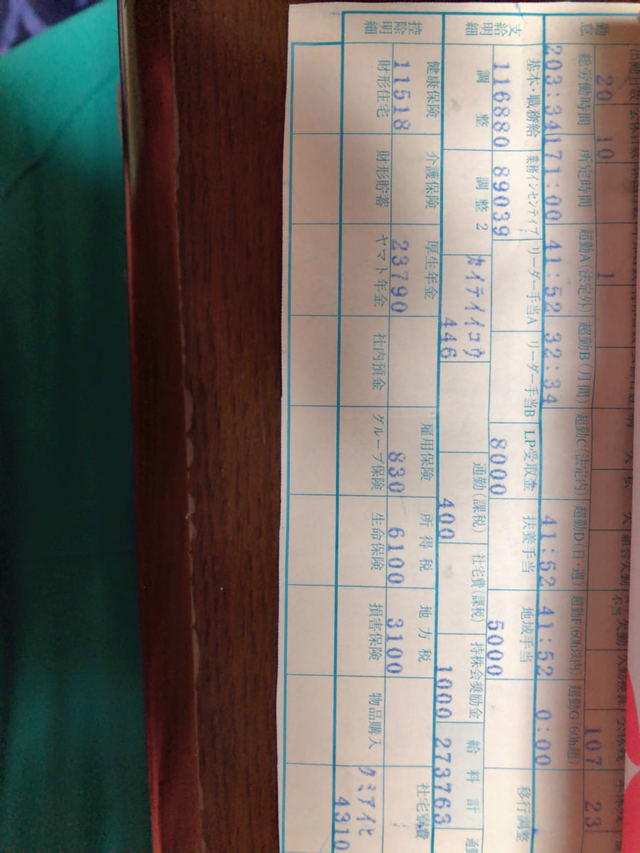 勤怠
20 10 1 107 23
総労働時間 所定時間 超勤A(法定外) 超勤B(月間) 超勤C(法定内) 超勤D(日・週) 超勤F(60h以内) 超勤G(60h超)
203:34 171:00 41:52 32:34 41:52 41:52 0:00
支給明細
基本・職務給 業務インセンティブ リーダー手当A リーダー手当B LP受取金 扶養手当 地域手当 移行調整
116880 89039 8000 5000
調整 調整2 カイテイイコウ 通勤(課税) 社宅費(課税) 持株会奨励金 給料計
446 400 1000 273763
控除明細
健康保険 介護保険 厚生年金 雇用保険 所得税 地方税 社宅寮費
11518 23790 830 6100 3100
財形住宅 財形貯蓄 ヤマト年金 社内預金 グループ保険 生命保険 損害保険 物品購入 クミアイヒ
4310